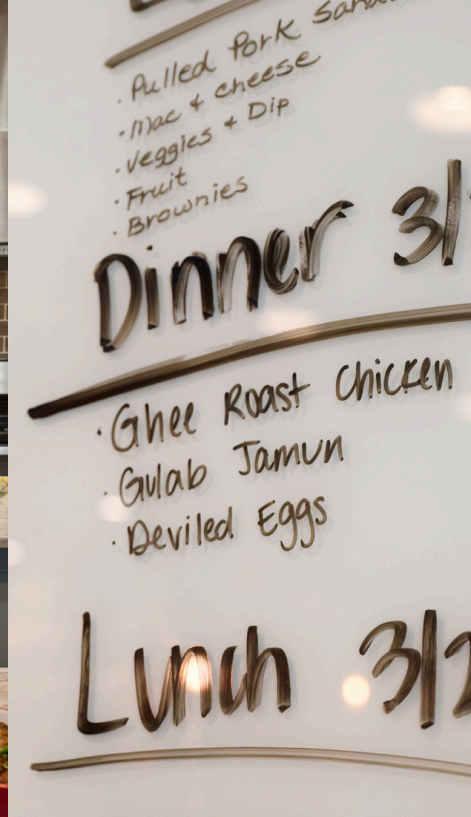 · Pulled Pork
· Mac & cheese
· Veggies & Dip
· Fruit
· Brownies
Dinner 3/
· Ghee Roast Chicken
· Gulab Jamun
· Deviled Eggs
Lunch 3/2